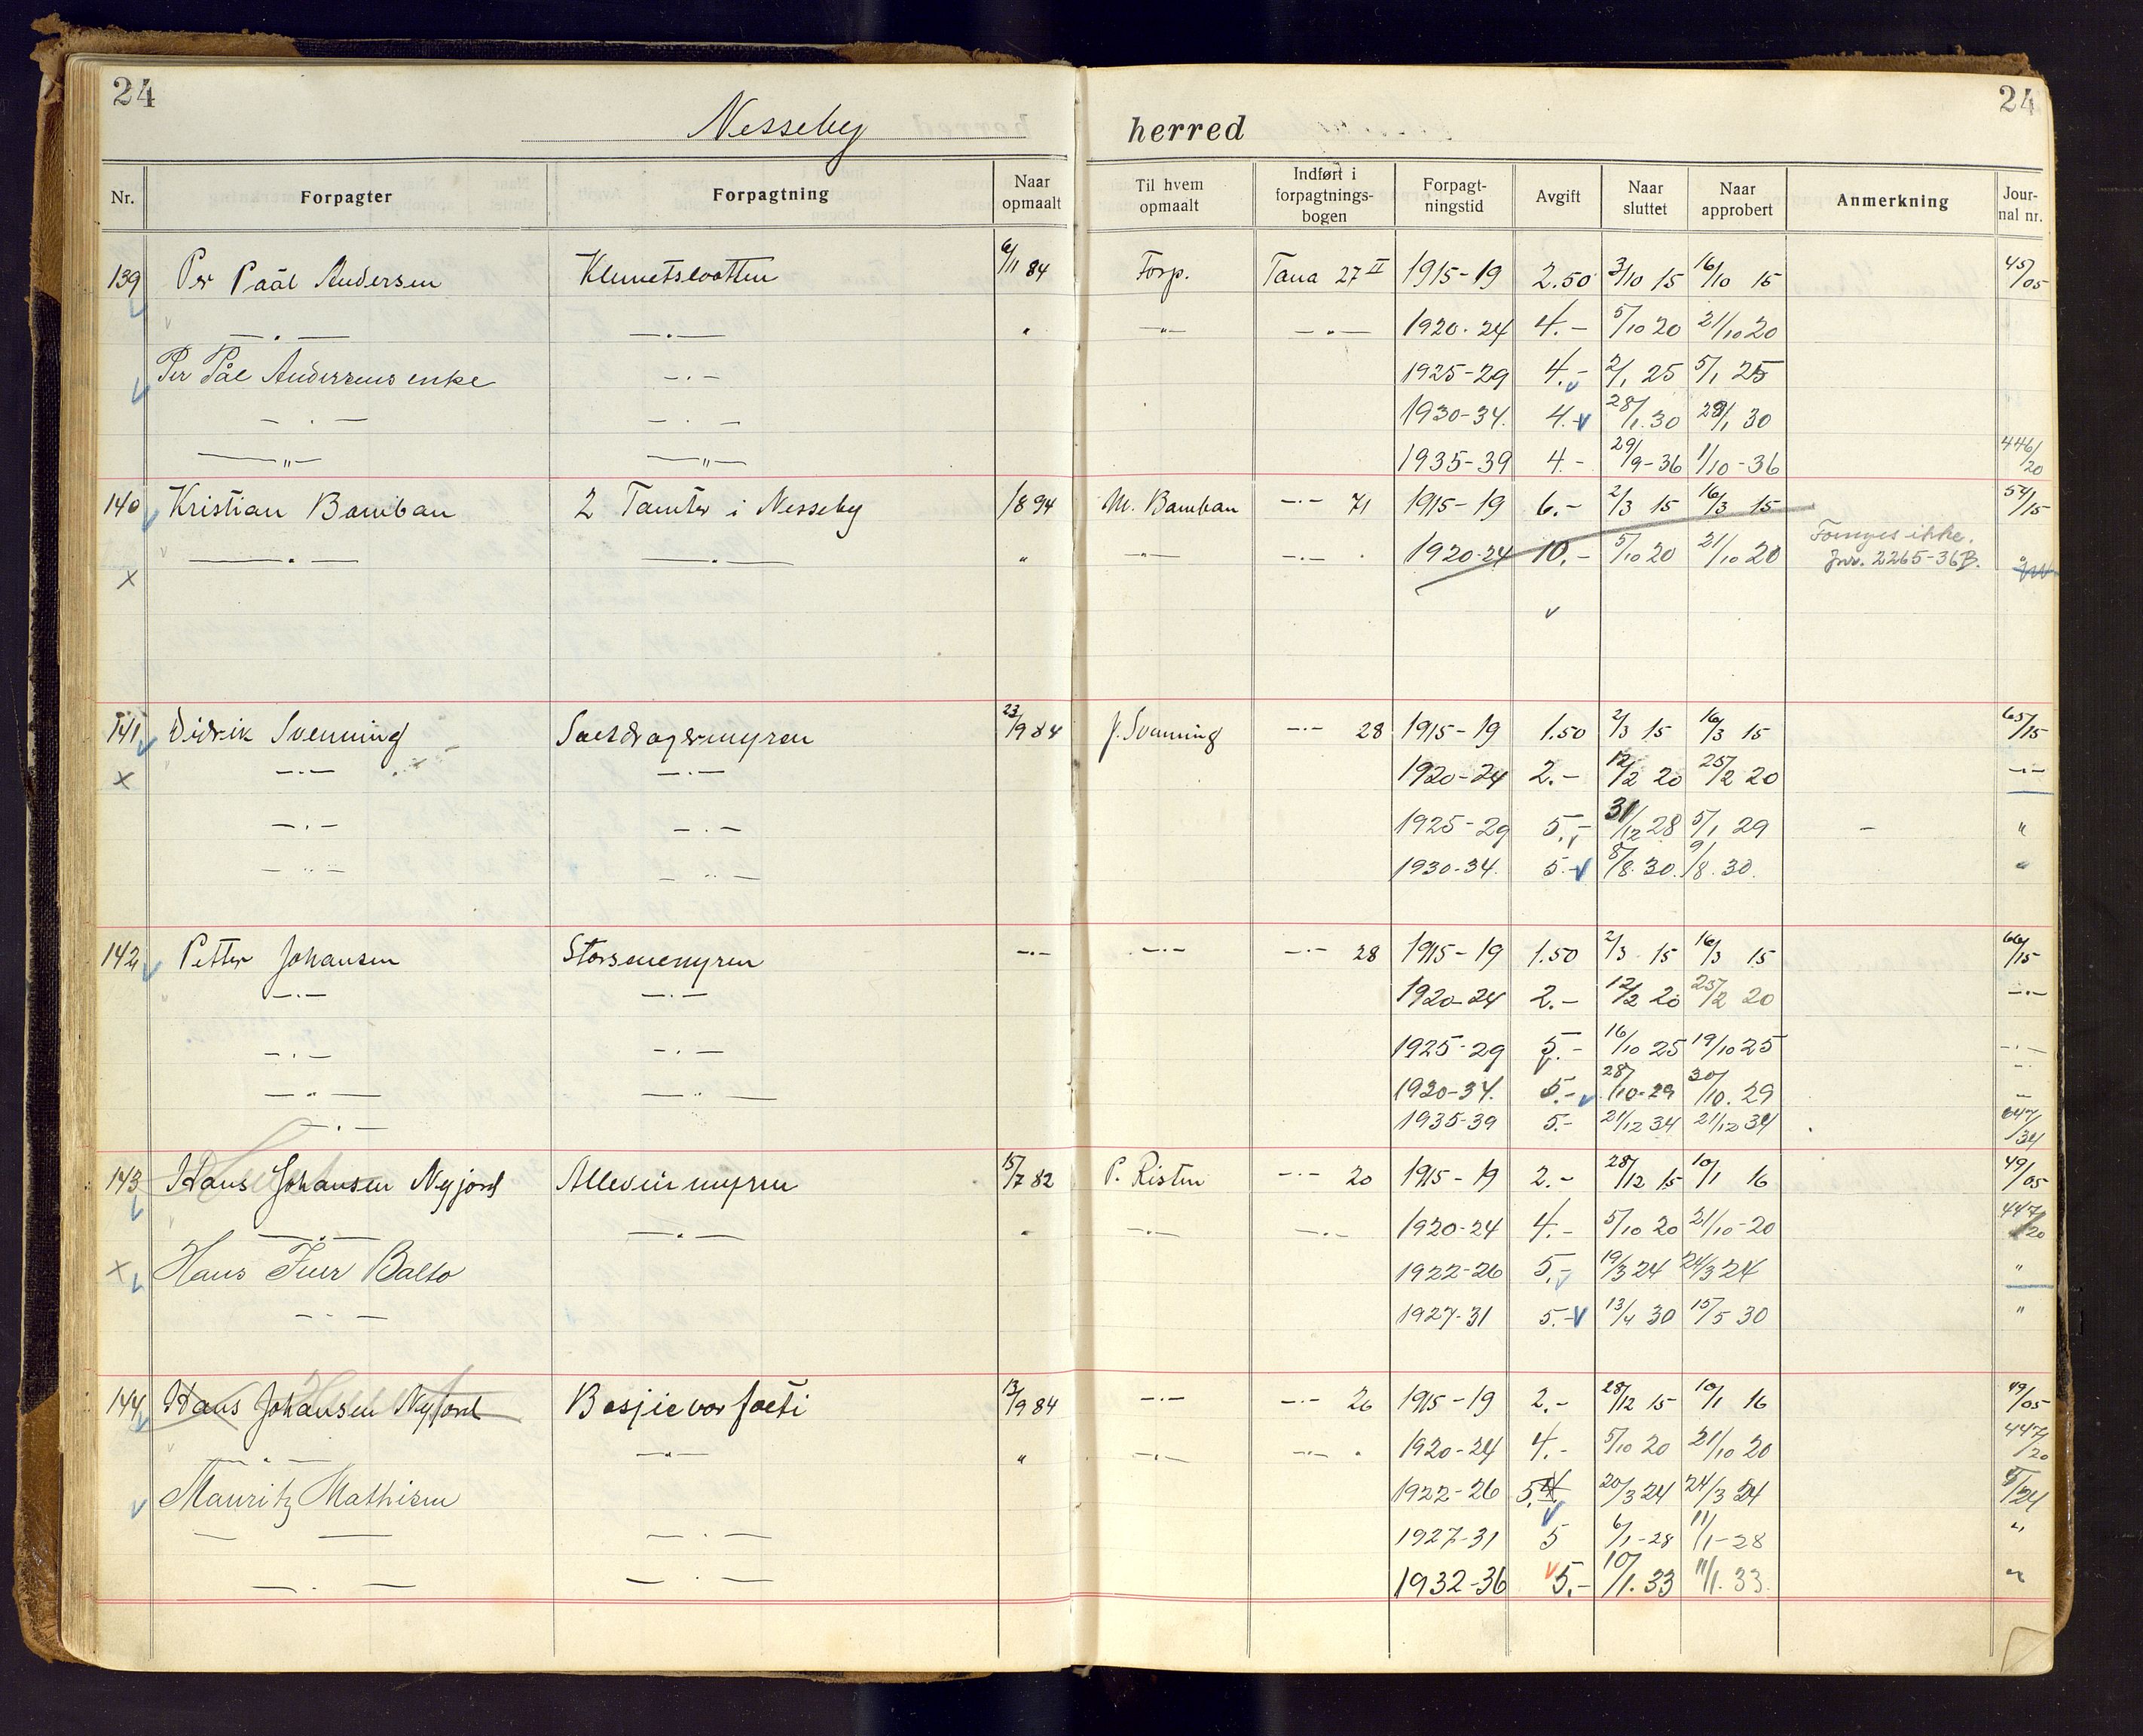 24
Nesseby herred
24
Nr. Forpagter Forpagtning Naar opmaalt Til hvem opmaalt Indført i forpagtnings-bogen Forpagt-ningstid Avgift Naar sluttet Naar approbert Anmerkning Jour-nal nr.
139 Per Paal Andersen Klemetsvatten 6/11 84 Forp. Tana 27 II 1915-19 2.50 3/10 15 16/10 15 45/05
—„— —„— „ —„— —„— 1920-24 4.- 5/10 20 21/10 20
Per Pål Andersens enke —„— 1925-29 4.- 2/1 25 5/1 25
—„— —„— 1930-34. 4.- 28/1.30 29/1 30
—„— —„— 1935-39 4.- 29/9-36 1/10-36 446/20
140 Kristian Banban 2 Tomter i Nesseby 1/8 94 M. Banban —„— 71 1915-19 6.- 2/3 15 16/3 15 54/15
—„— —„— „ —„— —„— 1920-24 10.- 5/10 20 21/10 20 Fornyes ikke. „
Jnr. 2265-36 B.
141 Didrik Svenning Saltdragermyren 23/9 84 J. Svenning —„— 28 1915-19 1.50 2/3 15 16/3 15 65/15
—„— —„— 1920-24 2.- 12/2 20 25/2 20 —„—
—„— —„— 1925-29 5.- 31/12 28 5/1 29 „
—„— —„— 1930-34. 5.- 8/8.30. 9/8.30. „
142 Petter Johansen —„— —„— —„— 28 1915-19 1.50 2/3 15 16/3 15 66/15
—„— —„— 1920-24 2.- 12/2 20 25/2 20 —„—
—„— —„— 1925-29 5.- 16/10 25 19/10 25 —„—
—„— —„— 1930-34. 5.- 28/10-29 30/10.29 —„—
—„— 1935-39 5.- 21/12 34 21/12 34 647/34
143 Hans Johansen Nyjord 15/7 82 P. Risten —„— 20 1915-19 2.- 28/12 15 10/1 16 49/05
—„— —„— „ —„— —„— 1920-24 4.- 5/10 20 21/10-20 447/20
Hans Iver Balto 1922-26 5.- 19/3 24 24/3 24 „
—„— 1927-31 5.- 13/4 30 15/5 30 „
144 Hans Johansen Nyjord 13/9 84 —„— —„— 26 1915-19 2.- 28/12 15 10/1 16 49/05
—„— —„— „ —„— —„— 1920-24 4.- 5/10 20 21/10 20 447/20
Mauritz Mathisen 1922-26 5. 20/3 24 24/3 24 5/24
—„— —„— 1927-31 5 6/1-28 11/1-28 „
—„— —„— 1932-36 5.- 10/1.33 11/1.33. „